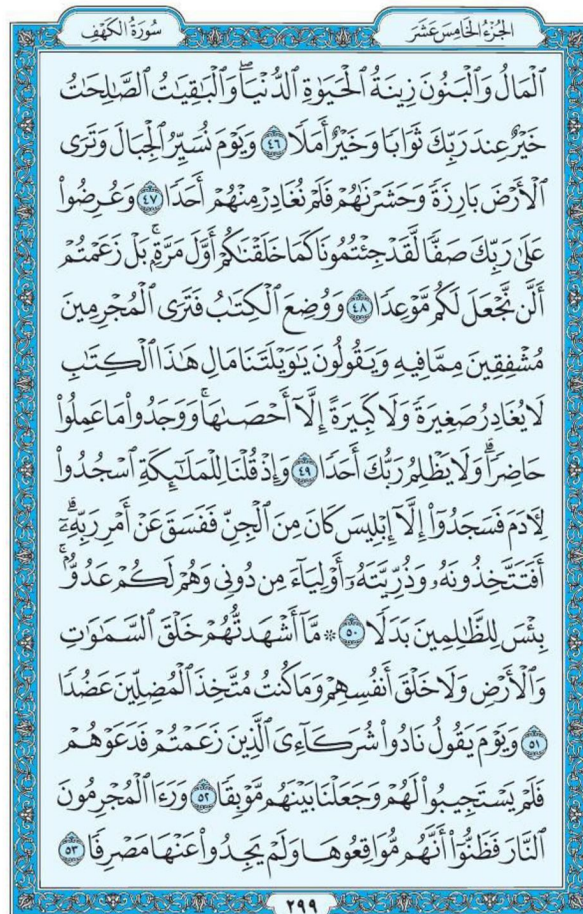 الجُزْءُ الخَامِسَ عَشَرَ
سُورَةُ الكَهْفِ
ٱلْمَالُ وَٱلْبَنُونَ زِينَةُ ٱلْحَيَوٰةِ ٱلدُّنْيَاۖ وَٱلْبَٰقِيَٰتُ ٱلصَّٰلِحَٰتُ
خَيْرٌ عِندَ رَبِّكَ ثَوَابًا وَخَيْرٌ أَمَلًا ٤٦ وَيَوْمَ نُسَيِّرُ ٱلْجِبَالَ وَتَرَى
ٱلْأَرْضَ بَارِزَةً وَحَشَرْنَٰهُمْ فَلَمْ نُغَادِرْ مِنْهُمْ أَحَدًا ٤٧ وَعُرِضُوا۟
عَلَىٰ رَبِّكَ صَفًّا لَّقَدْ جِئْتُمُونَا كَمَا خَلَقْنَٰكُمْ أَوَّلَ مَرَّةٍۭۚ بَلْ زَعَمْتُمْ
أَلَّن نَّجْعَلَ لَكُم مَّوْعِدًا ٤٨ وَوُضِعَ ٱلْكِتَٰبُ فَتَرَى ٱلْمُجْرِمِينَ
مُشْفِقِينَ مِمَّا فِيهِ وَيَقُولُونَ يَٰوَيْلَتَنَا مَالِ هَٰذَا ٱلْكِتَٰبِ
لَا يُغَادِرُ صَغِيرَةً وَلَا كَبِيرَةً إِلَّآ أَحْصَىٰهَاۚ وَوَجَدُوا۟ مَا عَمِلُوا۟
حَاضِرًاۗ وَلَا يَظْلِمُ رَبُّكَ أَحَدًا ٤٩ وَإِذْ قُلْنَا لِلْمَلَٰٓئِكَةِ ٱسْجُدُوا۟
لِـَٔادَمَ فَسَجَدُوٓا۟ إِلَّآ إِبْلِيسَ كَانَ مِنَ ٱلْجِنِّ فَفَسَقَ عَنْ أَمْرِ رَبِّهِۦٓۗ
أَفَتَتَّخِذُونَهُۥ وَذُرِّيَّتَهُۥٓ أَوْلِيَآءَ مِن دُونِى وَهُمْ لَكُمْ عَدُوٌّۢۚ
بِئْسَ لِلظَّٰلِمِينَ بَدَلًا ٥٠ ۞ مَّآ أَشْهَدتُّهُمْ خَلْقَ ٱلسَّمَٰوَٰتِ
وَٱلْأَرْضِ وَلَا خَلْقَ أَنفُسِهِمْ وَمَا كُنتُ مُتَّخِذَ ٱلْمُضِلِّينَ عَضُدًا
٥١ وَيَوْمَ يَقُولُ نَادُوا۟ شُرَكَآءِىَ ٱلَّذِينَ زَعَمْتُمْ فَدَعَوْهُمْ
فَلَمْ يَسْتَجِيبُوا۟ لَهُمْ وَجَعَلْنَا بَيْنَهُم مَّوْبِقًا ٥٢ وَرَءَا ٱلْمُجْرِمُونَ
ٱلنَّارَ فَظَنُّوٓا۟ أَنَّهُم مُّوَاقِعُوهَا وَلَمْ يَجِدُوا۟ عَنْهَا مَصْرِفًا ٥٣
٢٩٩